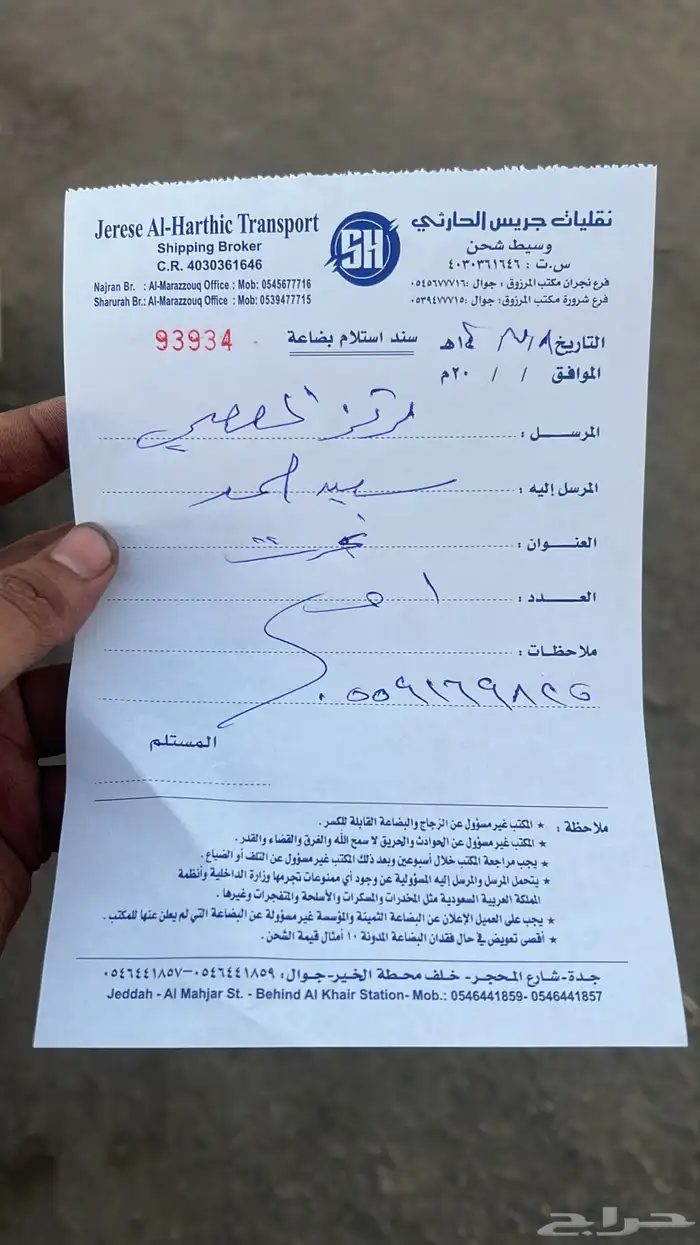 Jerese Al-Harthic Transport
Shipping Broker
C.R. 4030361646
Najran Br. : Al-Marazzouq Office : Mob: 0545677716
Sharurah Br.: Al-Marazzouq Office : Mob: 0539477715
SH
نقليات جريس الحارثي
وسيط شحن
س.ت : ٤٠٣٠٣٦١٦٤٦
فرع نجران مكتب المرزوق : جوال :٠٥٤٥٦٧٧٧١٦
فرع شرورة مكتب المرزوق: جوال :٠٥٣٩٤٧٧٧١٥
93934
سند استلام بضاعة
التاريخ / / ١٤هـ
الموافق / / ٢٠م
المرسل : مركز
المرسل إليه : سيد احمد
العنوان :
العدد : ١
ملاحظات :
المستلم
ملاحظة : ★ المكتب غير مسؤول عن الزجاج والبضاعة القابلة للكسر .
★ المكتب غير مسؤول عن الحوادث والحريق لا سمح الله والغرق والقضاء والقدر .
★ يجب مراجعة المكتب خلال أسبوعين وبعد ذلك المكتب غير مسؤول عن التلف أو الضياع .
★ يتحمل المرسل والمرسل إليه المسؤولية عن وجود أي ممنوعات تجرمها وزارة الداخلية وأنظمة
المملكة العربية السعودية مثل المخدرات والمسكرات والأسلحة والمتفجرات وغيرها .
★ يجب على العميل الإعلان عن البضاعة الثمينة والمؤسسة غير مسؤولة عن البضاعة التي لم يعلن عنها للمكتب .
★ أقصى تعويض في حال فقدان البضاعة المدونة ١٠ أمثال قيمة الشحن .
جدة-شارع المحجر- خلف محطة الخير-جوال: ٠٥٤٦٤٤١٨٥٩-٠٥٤٦٤٤١٨٥٧
Jeddah - Al Mahjar St. - Behind Al Khair Station- Mob.: 0546441859- 0546441857
حراج